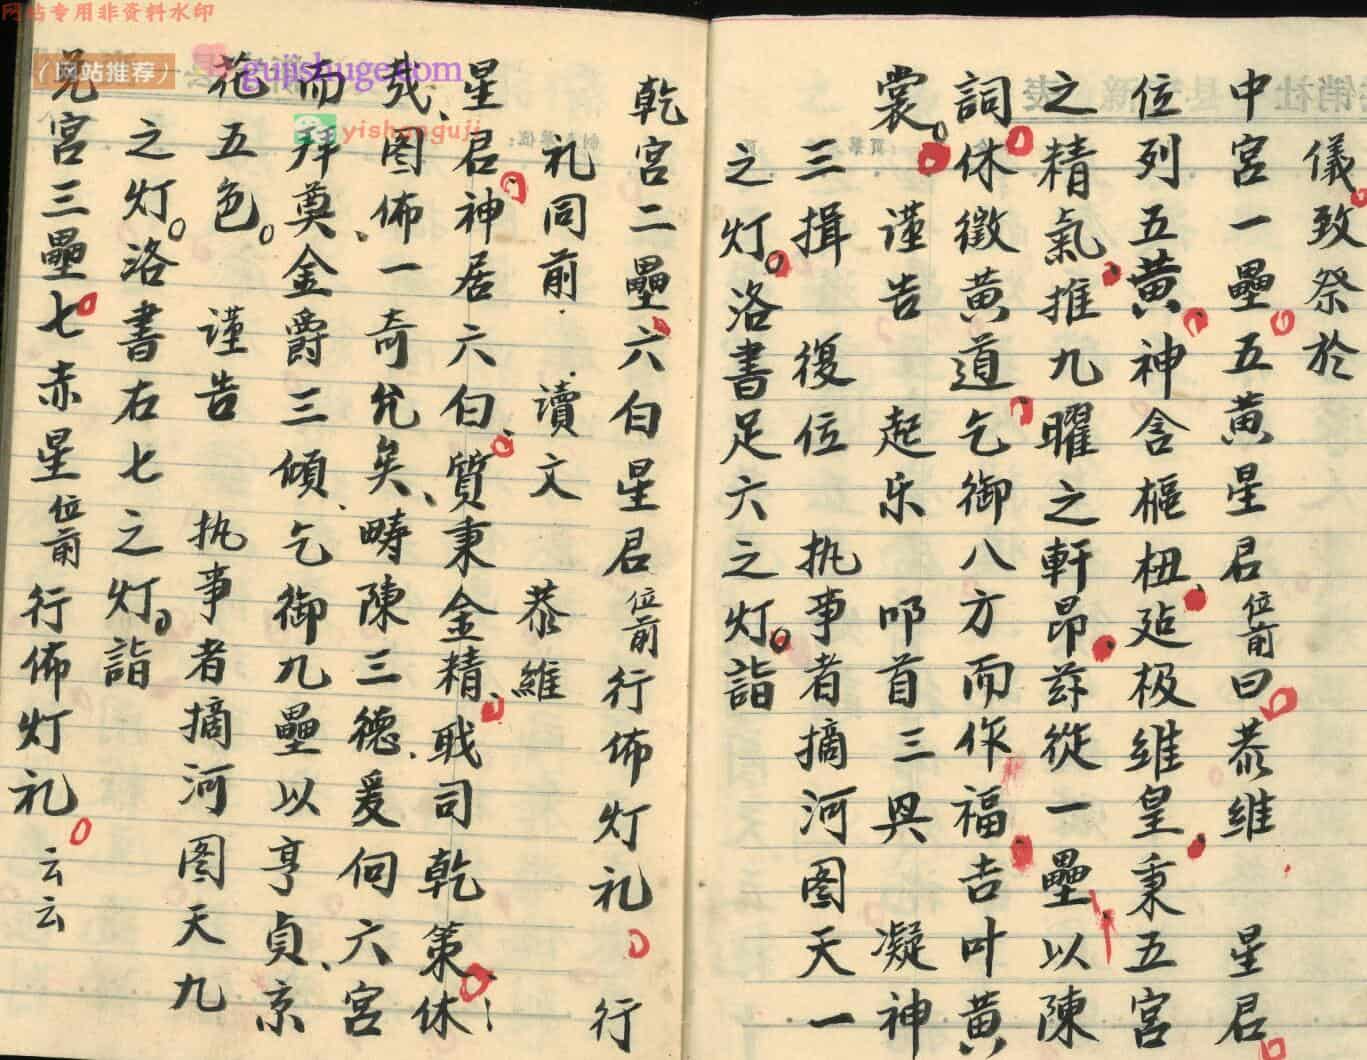 网站专用非资料水印
（网站推荐）
gujishuge.com
yishanguji
儀致祭於
中宮一壘五黃星君位前曰恭維 星君
位列五黃神含樞杻跕极维皇秉五宮
之精氣推九曜之軒昂茲從一壘以陳
詞休徵黃道乞御八方而作福吉叶黃
裳 謹告 起乐 叩首三興 凝神
三揖 復位 执事者摘河图天一
之灯洛書足六之灯詣
乾宮二壘六白星君位前行佈灯礼 行
礼同前 讀文 恭維
星君神居六白質秉金精戝司乾策休
哉图佈一奇允矣疇陳三德爰伺六宮
而拜奠金爵三傾乞御九壘以亨貞京
花五色 謹告 执事者摘河图天九
之灯洛書右七之灯詣
兑宮三壘七赤星位前行佈灯礼云云